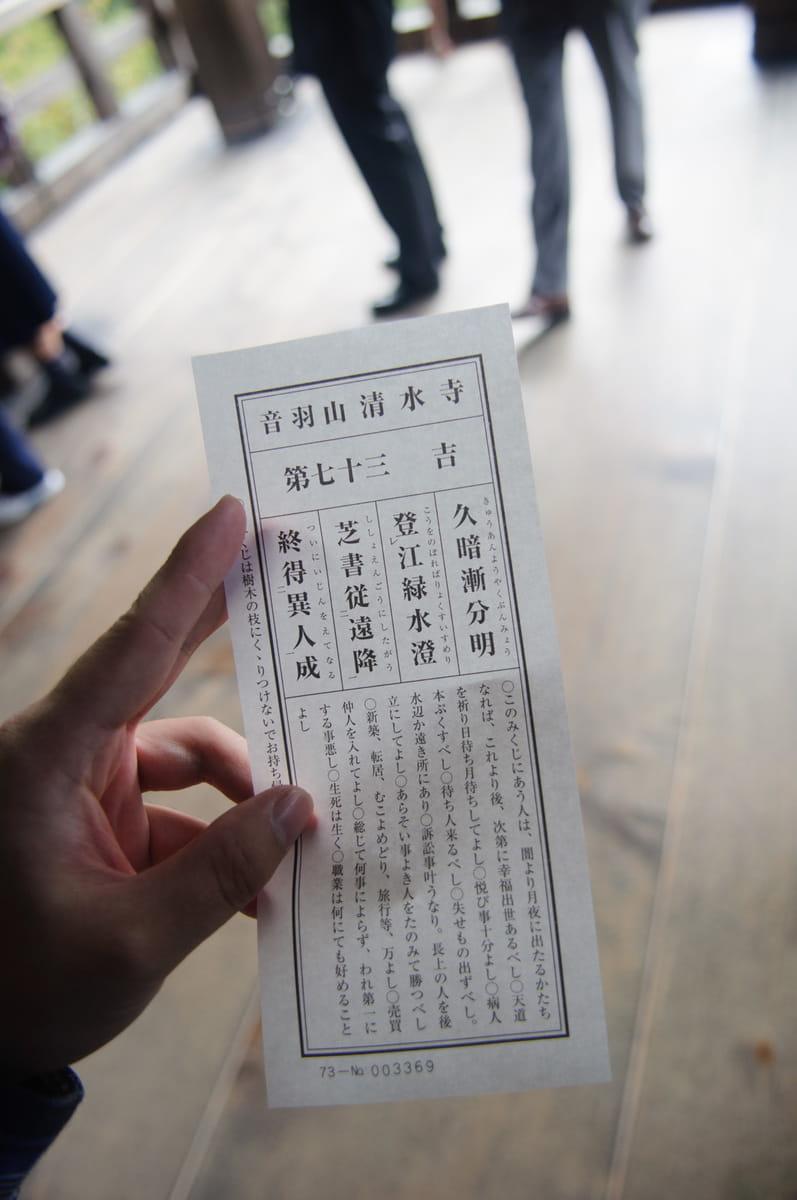 音羽山清水寺
第七十三 吉
久暗漸分明
きゅうあんようやくぶんみょう
登レ江緑水澄
こうをのぼればりょくすいすめり
芝書従二遠降一
ししょえんごうにしたがう
終得二異人一成
ついにいじんをえてなる
○このみくじにあう人は、闇より月夜に出たるかたち
なれば、これより後、次第に幸福出世あるべし○天道
を祈り日待ち月待ちしてよし○悦び事十分よし○病人
本ぷくすべし○待ち人来るべし○失せもの出ずべし。
水辺か遠き所にあり○訴訟事叶うなり。長上の人を後
立にしてよし○あらそい事よき人をたのみて勝つべし
○新築、転居、むこよめどり、旅行等、万よし○売買
仲人を入れてよし○総じて何事によらず、われ第一に
する事悪し○生死は生く○職業は何にても好めること
よし
くじは樹木の枝にくゝりつけないでお持ち
73-№ 003369